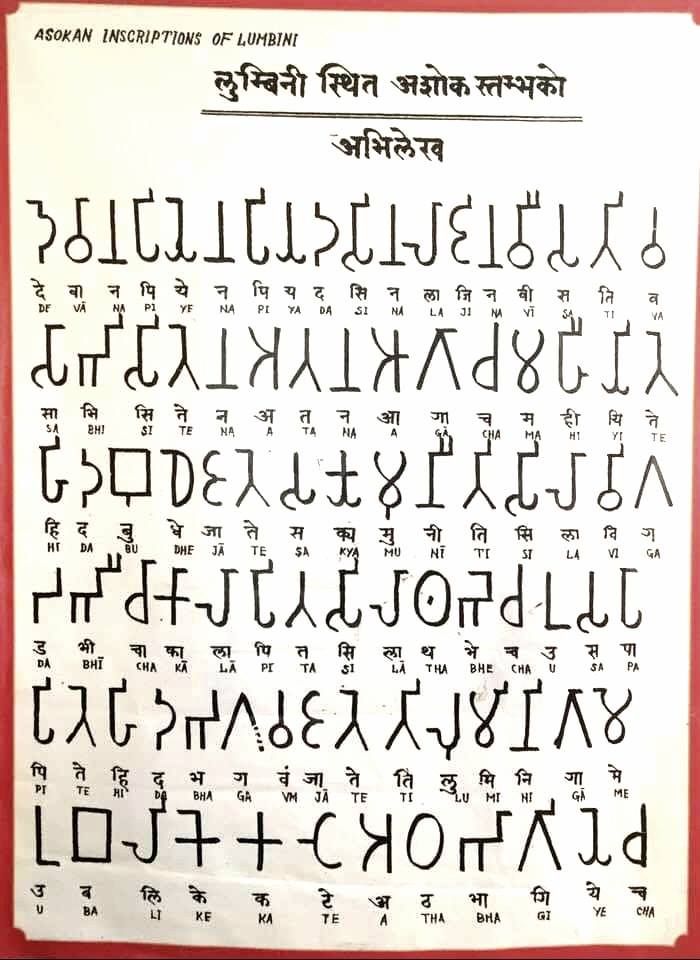 ASOKAN INSCRIPTIONS OF LUMBINI
लुम्बिनी स्थित अशोक स्तम्भको
अभिलेख
𑀤𑁂 𑀯𑀸 𑀦 𑀧𑀺 𑀬𑁂 𑀦 𑀧𑀺 𑀬 𑀤 𑀲𑀺 𑀦 𑀮𑀸 𑀚𑀺 𑀦 𑀯𑀻 𑀲 𑀢𑀺 𑀯
दे वा न पि ये न पि य द सि न ला जि न वी स ति व
DE VĀ NA PI YE NA PI YA DA SI NA LA JI NA VĪ SA TI VA
𑀲𑀸 𑀪𑀺 𑀲𑀺 𑀢𑁂 𑀦 𑀅 𑀢 𑀦 𑀆 𑀕𑀸 𑀘 𑀫 𑀳𑀻 𑀬𑀺 𑀢𑁂
सा भि सि ते न अ त न आ गा च म ही यि ते
SA BHI SI TE NA A TA NA A GĀ CHA MA HI YI TE
𑀳𑀺 𑀤 𑀩𑀼 𑀥𑁂 𑀚𑀸 𑀢𑁂 𑀲 𑀓𑁆𑀬 𑀫𑀼 𑀦𑀻 𑀢𑀺 𑀲𑀺 𑀮𑀸 𑀯𑀺 𑀕
हि द बु धे जा ते स क्य मु नी ति सि ला वि ग
HI DA BU DHE JĀ TE SA KYA MU NĪ TI SI LA VI GA
𑀟 𑀪𑀻 𑀘𑀸 𑀓𑀸 𑀮𑀸 𑀧𑀺 𑀢 𑀲𑀺 𑀮𑀸 𑀣 𑀪𑁂 𑀘 𑀉 𑀲 𑀧𑀸
ड भी चा का ला पि त सि ला थ भे च उ स पा
DA BHĪ CHA KĀ LĀ PI TA SI LĀ THA BHE CHA U SA PA
𑀧𑀺 𑀢𑁂 𑀳𑀺 𑀤 𑀪 𑀕 𑀯𑀁 𑀚𑀸 𑀢𑁂 𑀢𑀺 𑀮𑀼 𑀫𑀺 𑀦𑀺 𑀕𑀸 𑀫𑁂
पि ते हि द भ ग वं जा ते ति लु मि नि गा मे
PI TE HI DA BHA GA VM JĀ TE TI LU MI NI GĀ ME
𑀉 𑀩 𑀮𑀺 𑀓𑁂 𑀓 𑀝𑁂 𑀅 𑀞 𑀪𑀸 𑀕𑀺 𑀬𑁂 𑀘
उ ब लि के क टे अ ठ भा गि ये च
U BA LI KE KA TE A THA BHA GI YE CHA